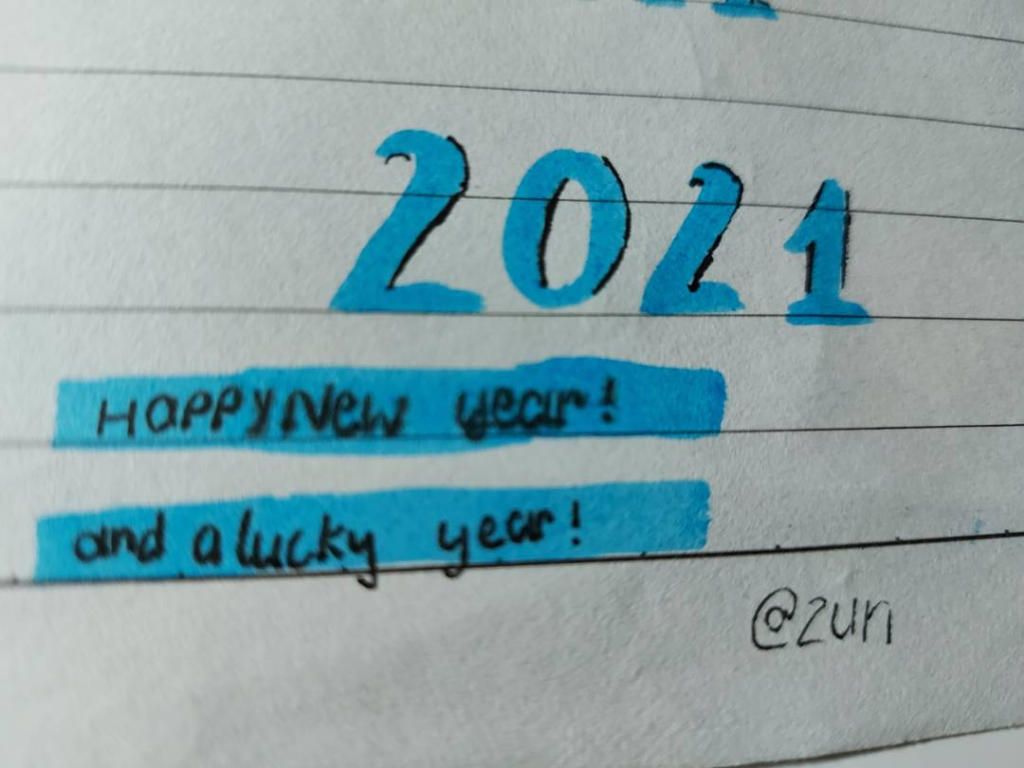 2021
Happy New year!
and a lucky year!
@zuri